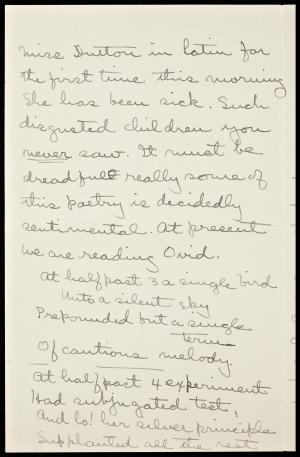 Miss Dutton in latin for
the first time this morning
She has been sick. Such
disgusted children you
never saw. It must be
dreadful really some of
this poetry is decidedly
sentimental. At present
we are reading Ovid.
At half past 3 a single bird
Unto a silent sky
Propounded but a single
term
Of cautious melody.
At half past 4 experiment
Had subjugated test,
And lo! her silver principle
Supplanted all the rest